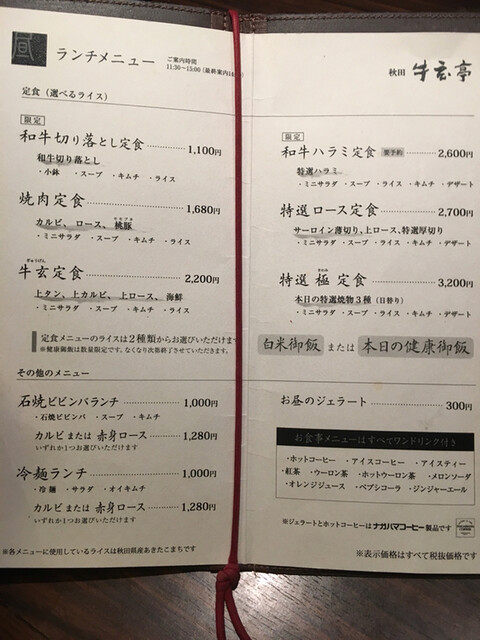 昼
ランチメニュー
ご案内時間
11:30～15:00 (最終案内14
定食 (選べるライス)
限定
和牛切り落とし定食 1,100円
和牛切り落とし
・小鉢 ・スープ ・キムチ ・ライス
焼肉定食 1,680円
カルビ、ロース、桃豚
・ミニサラダ ・スープ ・キムチ ・ライス
ぎゅうげん
牛玄定食 2,200円
上タン、上カルビ、上ロース、海鮮
・ミニサラダ ・スープ ・キムチ ・ライス
定食メニューのライスは2種類からお選びいただけます
※健康御飯は数量限定です。なくなり次第終了させていただきます。
その他のメニュー
石焼ビビンバランチ 1,000円
・石焼ビビンバ ・スープ ・キムチ
カルビ または 赤身ロース 1,280円
いずれか1つお選びいただけます
冷麺ランチ 1,000円
・冷麺 ・サラダ ・オイキムチ
カルビ または 赤身ロース 1,280円
いずれか1つお選びいただけます
※各メニューに使用しているライスは秋田県産あきたこまちです
秋田 牛玄亭
限定
和牛ハラミ定食 要予約 2,600円
特選ハラミ
・ミニサラダ ・スープ ・ライス ・キムチ ・デザート
特選ロース定食 2,700円
サーロイン薄切り、上ロース、特選厚切り
・ミニサラダ ・スープ ・ライス ・キムチ ・デザート
きわみ
特選 極 定食 3,200円
本日の特選焼物3種 (日替り)
・ミニサラダ ・スープ ・ライス ・キムチ ・デザート
白米御飯 または 本日の健康御飯
お昼のジェラート 300円
お食事メニューはすべてワンドリンク付き
・ホットコーヒー ・アイスコーヒー ・アイスティー
・紅茶 ・ウーロン茶 ・ホットウーロン茶 ・メロンソーダ
・オレンジジュース ・ペプシコーラ ・ジンジャーエール
※ジェラートとホットコーヒーはナガハマコーヒー製品です
※表示価格はすべて税抜価格です